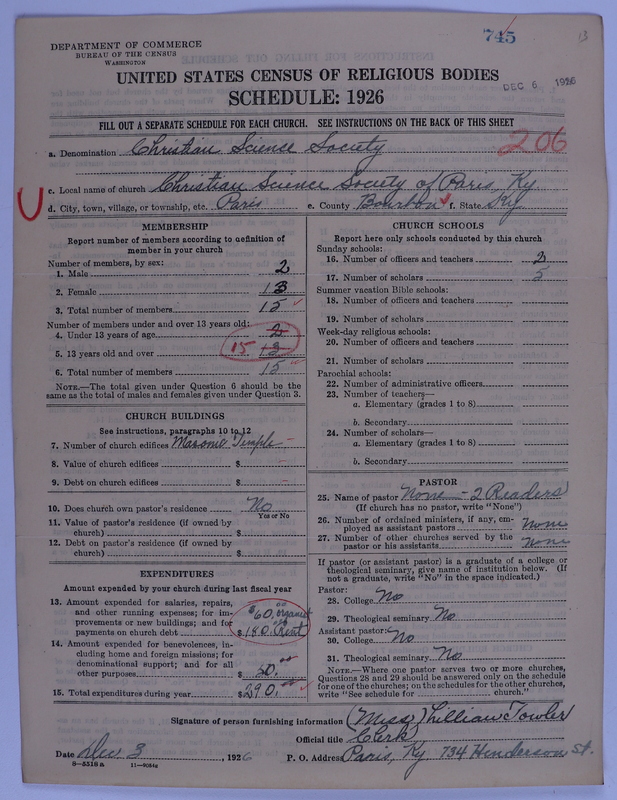 745
13
DEPARTMENT OF COMMERCE
BUREAU OF THE CENSUS
WASHINGTON
UNITED STATES CENSUS OF RELIGIOUS BODIES
DEC 6 1926
SCHEDULE: 1926
FILL OUT A SEPARATE SCHEDULE FOR EACH CHURCH. SEE INSTRUCTIONS ON THE BACK OF THIS SHEET
206
a. Denomination Christian Science Society
c. Local name of church Christian Science Society of Paris, Ky.
d. City, town, village, or township, etc. Paris e. County Bourbon f. State Ky.
MEMBERSHIP
Report number of members according to definition of
member in your church
Number of members, by sex:
1. Male 2
2. Female 13
3. Total number of members 15
Number of members under and over 13 years old:
4. Under 13 years of age 2
5. 13 years old and over 15 13
6. Total number of members 15
NOTE.—The total given under Question 6 should be the
same as the total of males and females given under Question 3.
CHURCH BUILDINGS
See instructions, paragraphs 10 to 12
7. Number of church edifices Masonic Temple
8. Value of church edifices $
9. Debt on church edifices $
10. Does church own pastor's residence No
Yes or No
11. Value of pastor's residence (if owned by
church) $
12. Debt on pastor's residence (if owned by
church) $
EXPENDITURES
Amount expended by your church during last fiscal year
13. Amount expended for salaries, repairs,
and other running expenses; for im-
provements or new buildings; and for
payments on church debt
$60.00 organist
$180.00 Rent
14. Amount expended for benevolences, in-
cluding home and foreign missions; for
denominational support; and for all
other purposes $50.00
15. Total expenditures during year $290.00
CHURCH SCHOOLS
Report here only schools conducted by this church
Sunday schools:
16. Number of officers and teachers 2
17. Number of scholars 5
Summer vacation Bible schools:
18. Number of officers and teachers
19. Number of scholars
Week-day religious schools:
20. Number of officers and teachers
21. Number of scholars
Parochial schools:
22. Number of administrative officers
23. Number of teachers—
a. Elementary (grades 1 to 8)
b. Secondary
24. Number of scholars—
a. Elementary (grades 1 to 8)
b. Secondary
PASTOR
25. Name of pastor None — 2 Readers
(If church has no pastor, write "No")
26. Number of ordained ministers, if any, em-
ployed as assistant pastors None
27. Number of other churches served by the
pastor or his assistants None
If pastor (or assistant pastor) is a graduate of a college or
theological seminary, give name of institution below. (If
not a graduate, write "No" in the space indicated.)
Pastor:
28. College No
29. Theological seminary No
Assistant pastor:
30. College No
31. Theological seminary No
NOTE.—Where one pastor serves two or more churches,
Questions 28 and 29 should be answered only on the schedule
for one of the churches; on the schedules for the other churches,
write "See schedule for church."
Signature of person furnishing information (Miss) Lillian Fowler
Official title Clerk)
Date Dec. 3, 1926 P. O. Address Paris, Ky 734 Henderson St.
8-5518a 11-9084a